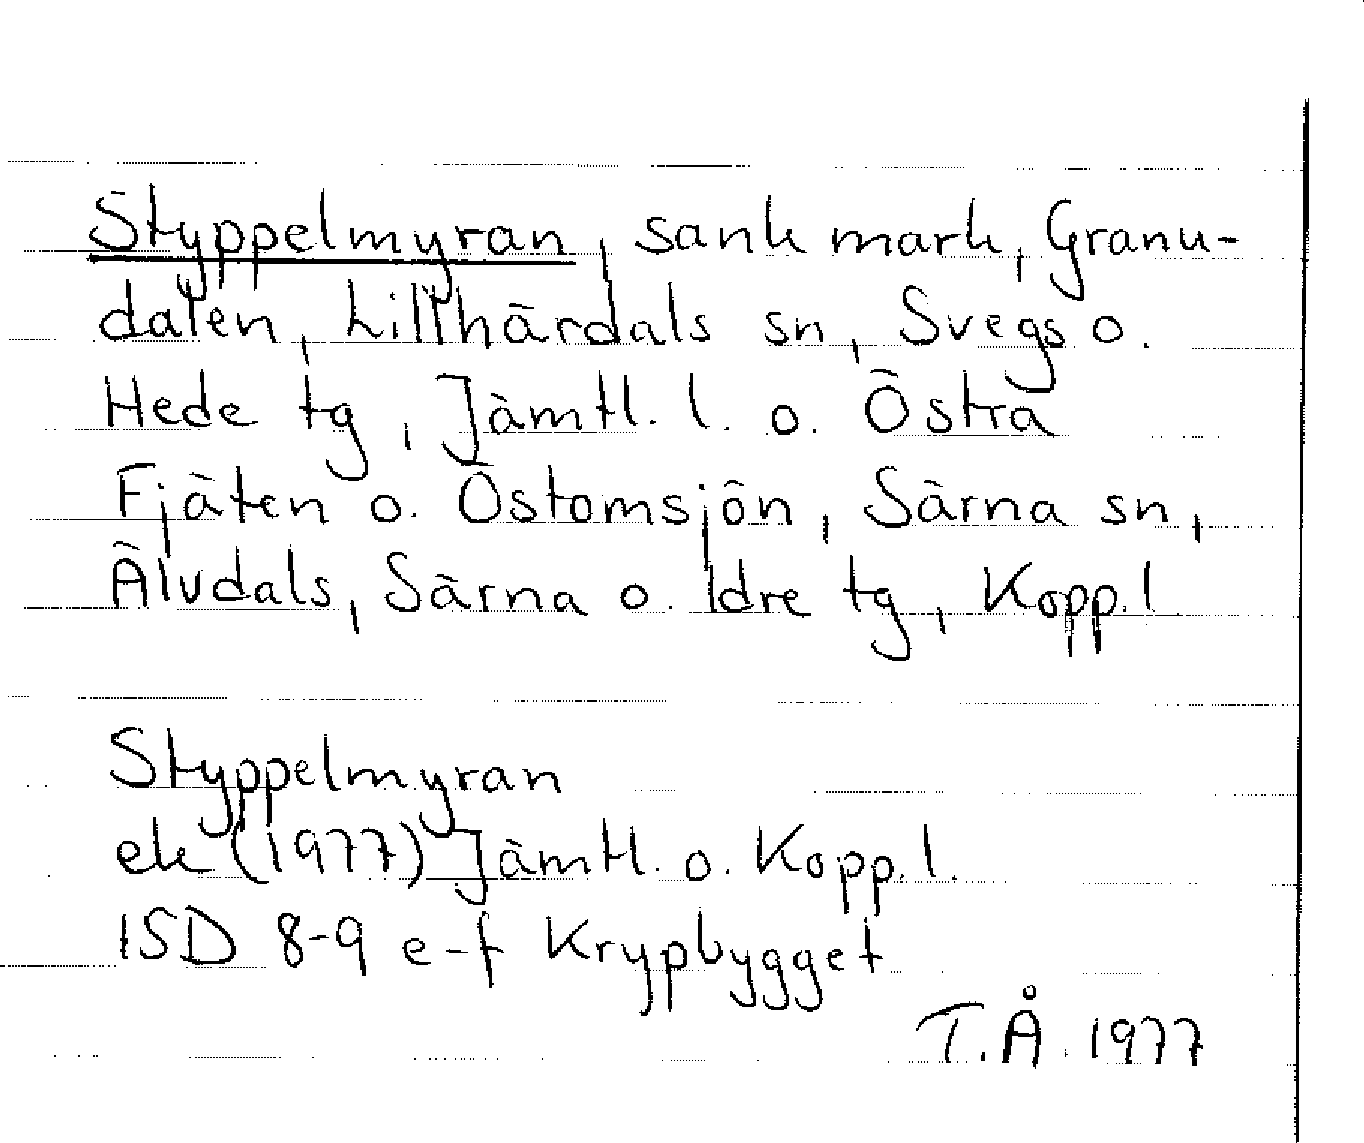 Styppelmyran, sank mark, Granu-
dalen, Lillhärdals sn, Svegs o.
Hede tg, Jämtl. l. o. Östra
Fjäten o. Östomsjön, Särna sn,
Älvdals, Särna o. Idre tg, Kopp. l
Styppelmyran
ek (1977) Jämtl. o. Kopp. l.
15D 8-9 e-f Krypbygget
T.Å. 1977